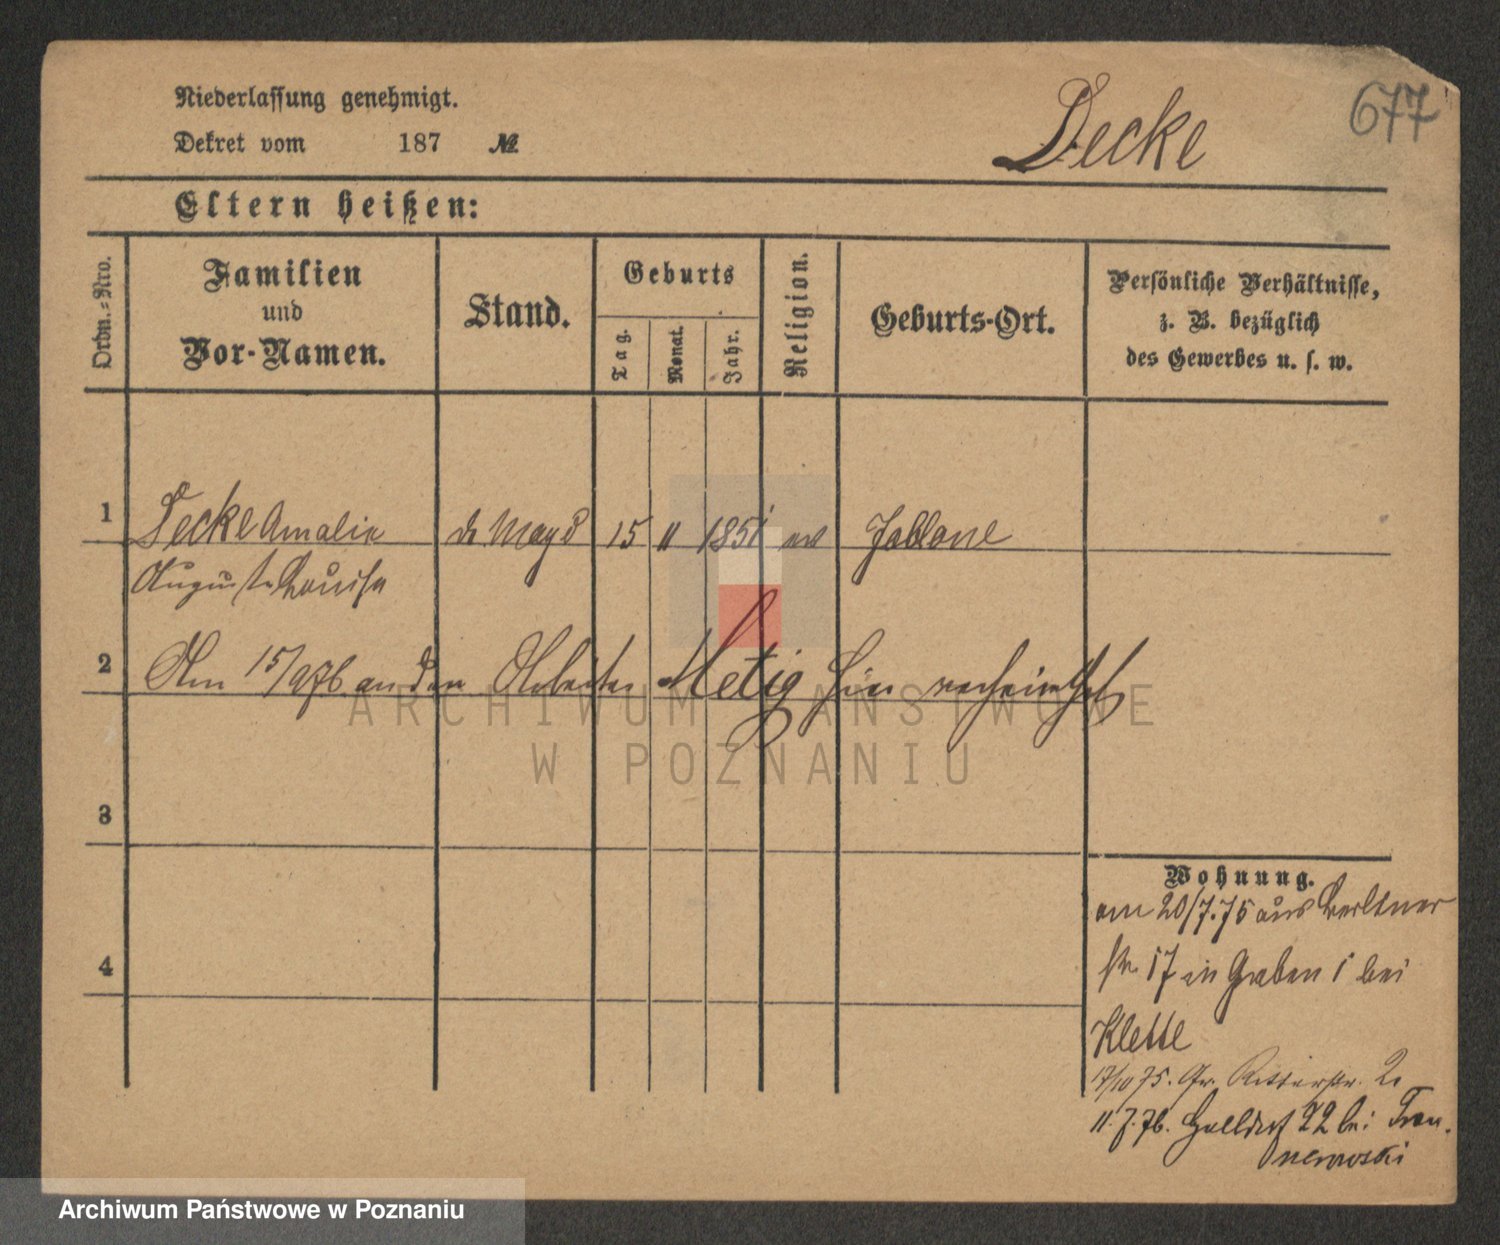 Niederlassung genehmigt.
Dekret vom 187 №
Decke
677
Eltern heißen:
Ordn.-Nro.
Familien
und
Vor-Namen.
Stand.
Geburts
Tag.
Monat.
Jahr.
Religion.
Geburts-Ort.
Persönliche Verhältnisse,
z. B. bezüglich
des Gewerbes u. s. w.
1 Decke Amalie d Magd 15 11 1851 ev Jablone
Auguste Louise
2 Am 15/9 76 an den Arbeiter Metig hier verheirathet
ARCHIWUM PAŃSTWOWE
W POZNANIU
3
4
Wohnung.
am 20/7.75 aus Berliner
str 17 in Graben 1 bei
Klette
17/10 75. Gr. Ritterstr. 2
11.7.76. Halbdorf 22 bei
Archiwum Państwowe w Poznaniu